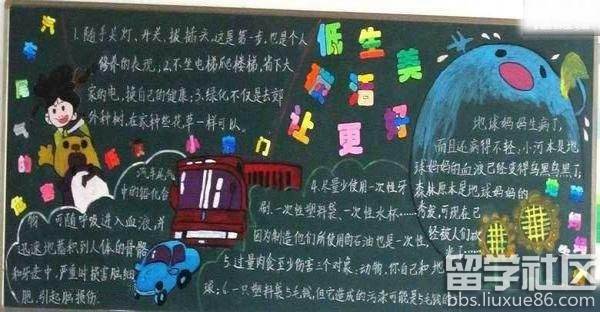 汽车尾气的害
1.随手关灯、开关,拔插头,这是第一步,也是个人
修养的表现;2.不坐电梯爬楼梯,省下大
家的电,换自己的健康;3.绿化不仅是去郊
外种树,在家种些花草一样可以。
低碳让
生活更
美好
小窍门
地球妈妈生病了,
而且还病得不轻,小河本是地
球妈妈的血液已经变得乌黑乌黑了,
森林原本是地球妈妈的
秀发,可现在已
经被人们
妈妈
汽车尾气
中的铅化合
物可随呼吸进入血液,并
迅速地蓄积到人体的骨骼
和牙齿中,严重时损害脑细
胞,引起脑损伤.
4.尽量少使用一次性牙
刷、一次性塑料袋、一次性水杯……
因为制造他们所使用的石油也是一次性.
5.过量肉食至少伤害三个对象:动物、你自己和地
球;6.一只塑料袋5毛钱,但它造成的污染可能是5毛钱的
留学社区
bbs.liuxue86.com